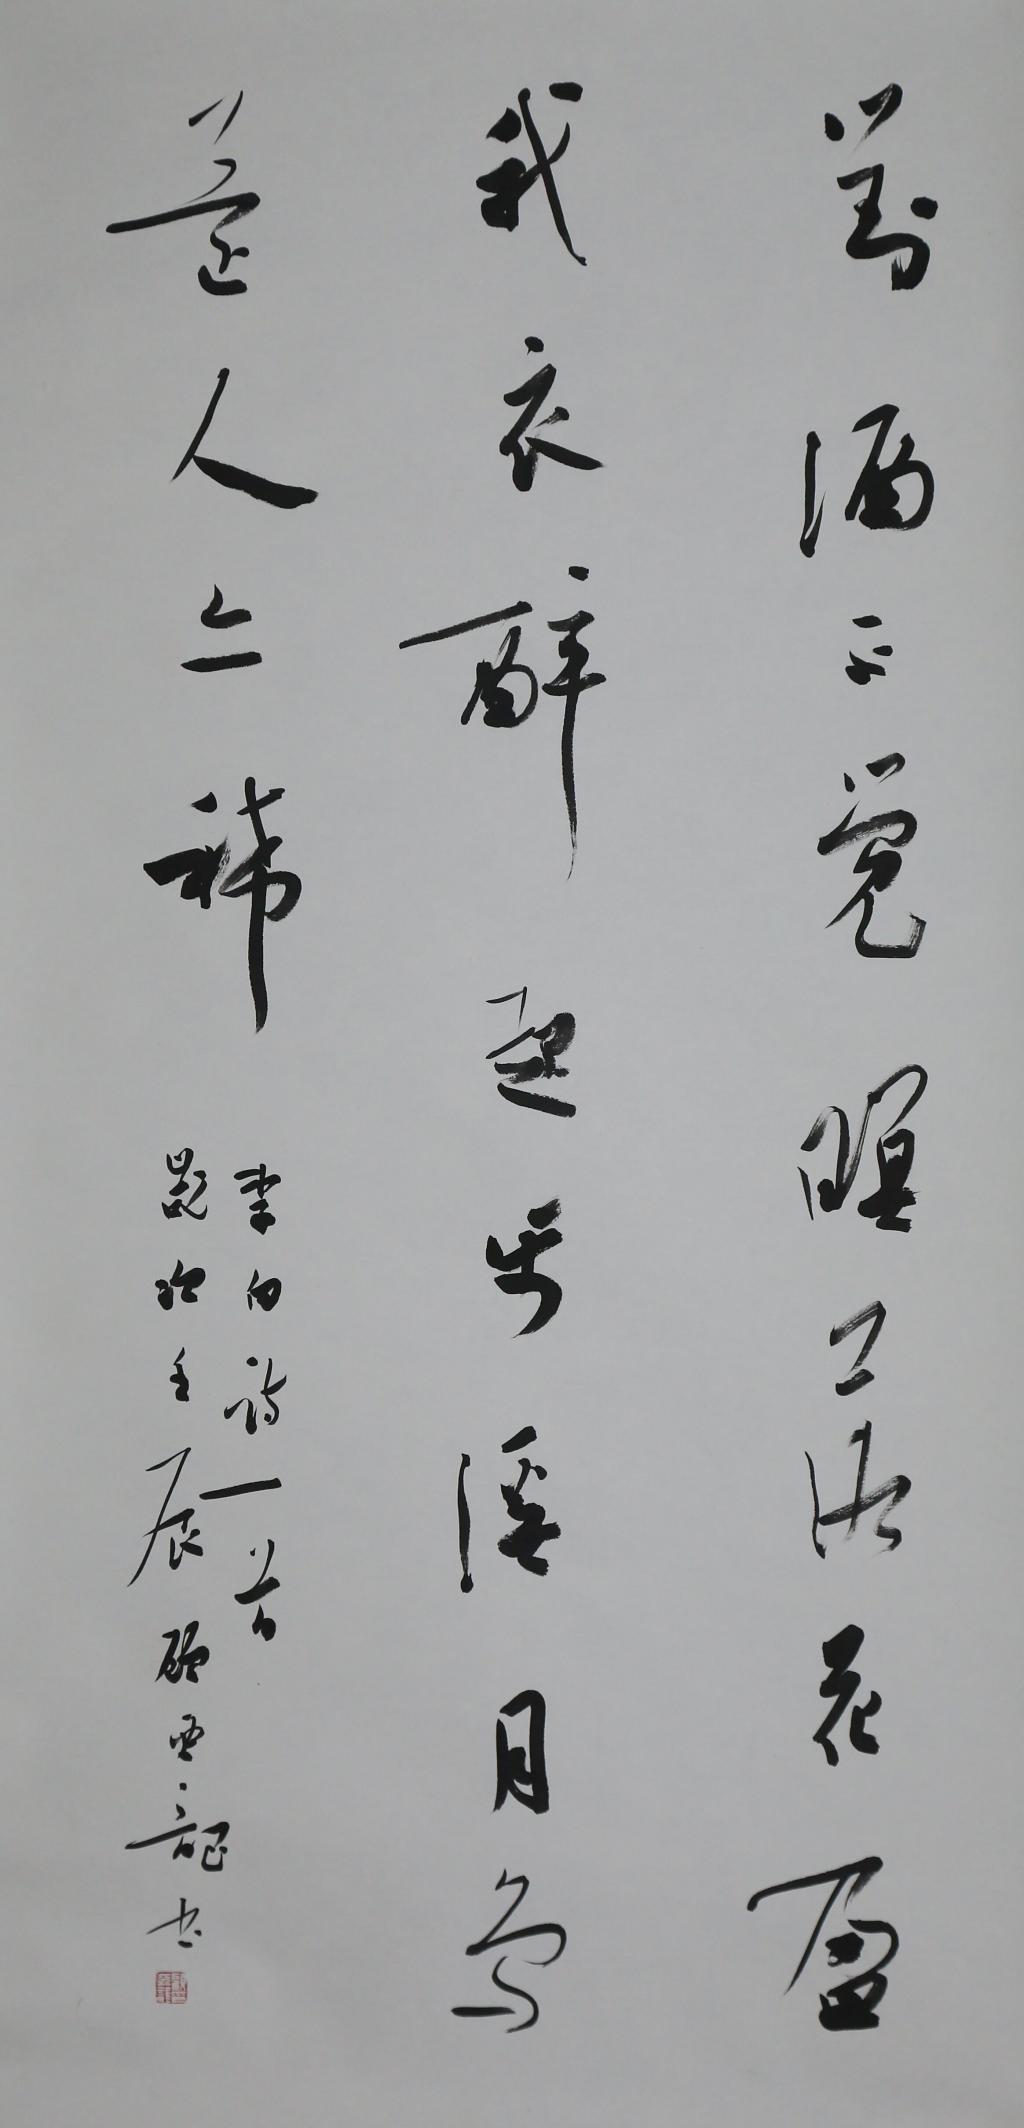 對酒不覺暝落花盈
我衣醉起步溪月鳥
還人亦稀
李白詩一首
歲次壬辰顧亞龍书